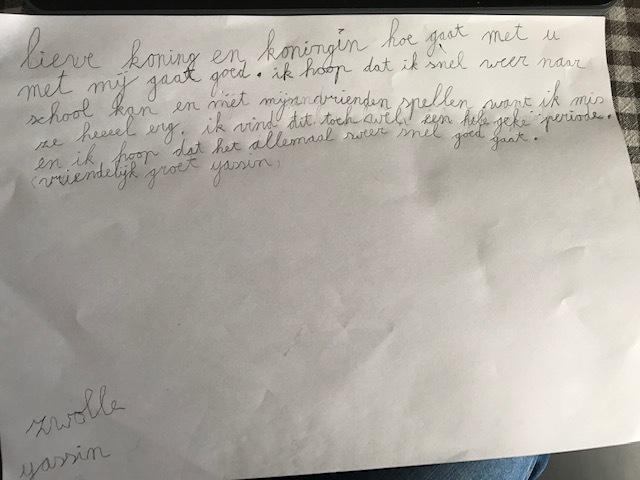 lieve koning en koningin hoe gaat met u
met mij gaat goed. ik hoop dat ik snel weer naar
school kan en met mijn vrienden spellen want ik mis
ze heeeel erg. ik vind dit toch wel een hele geke periode.
en ik hoop dat het allemaal weer snel goed gaat.
vriendelijk groet yassin,
zwolle
yassin